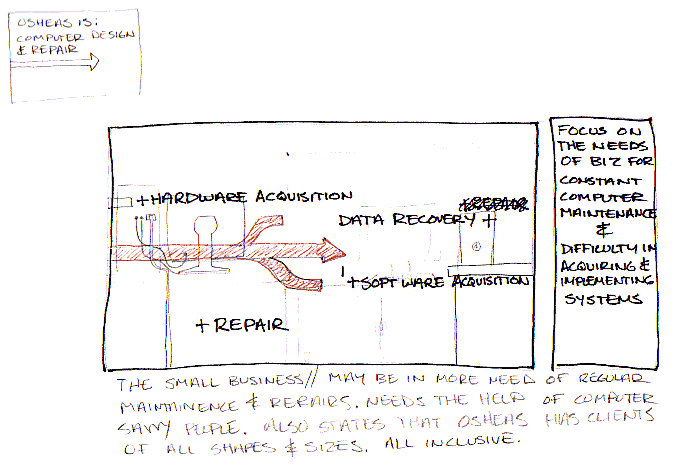 OSHEAS IS:
COMPUTER DESIGN
& REPAIR
+HARDWARE ACQUISITION
DATA RECOVERY +
+SOFTWARE ACQUISITION
+ REPAIR
FOCUS ON
THE NEEDS
OF BIZ FOR
CONSTANT
COMPUTER
MAINTENANCE
&
DIFFICULTY IN
ACQUIRING &
IMPLEMENTING
SYSTEMS
THE SMALL BUSINESS// MAY BE IN MORE NEED OF REGULAR
MAINTAINENCE & REPAIRS. NEEDS THE HELP OF COMPUTER
SAVVY PEOPLE. ALSO STATES THAT OSHEAS HAS CLIENTS
OF ALL SHAPES & SIZES. ALL INCLUSIVE.